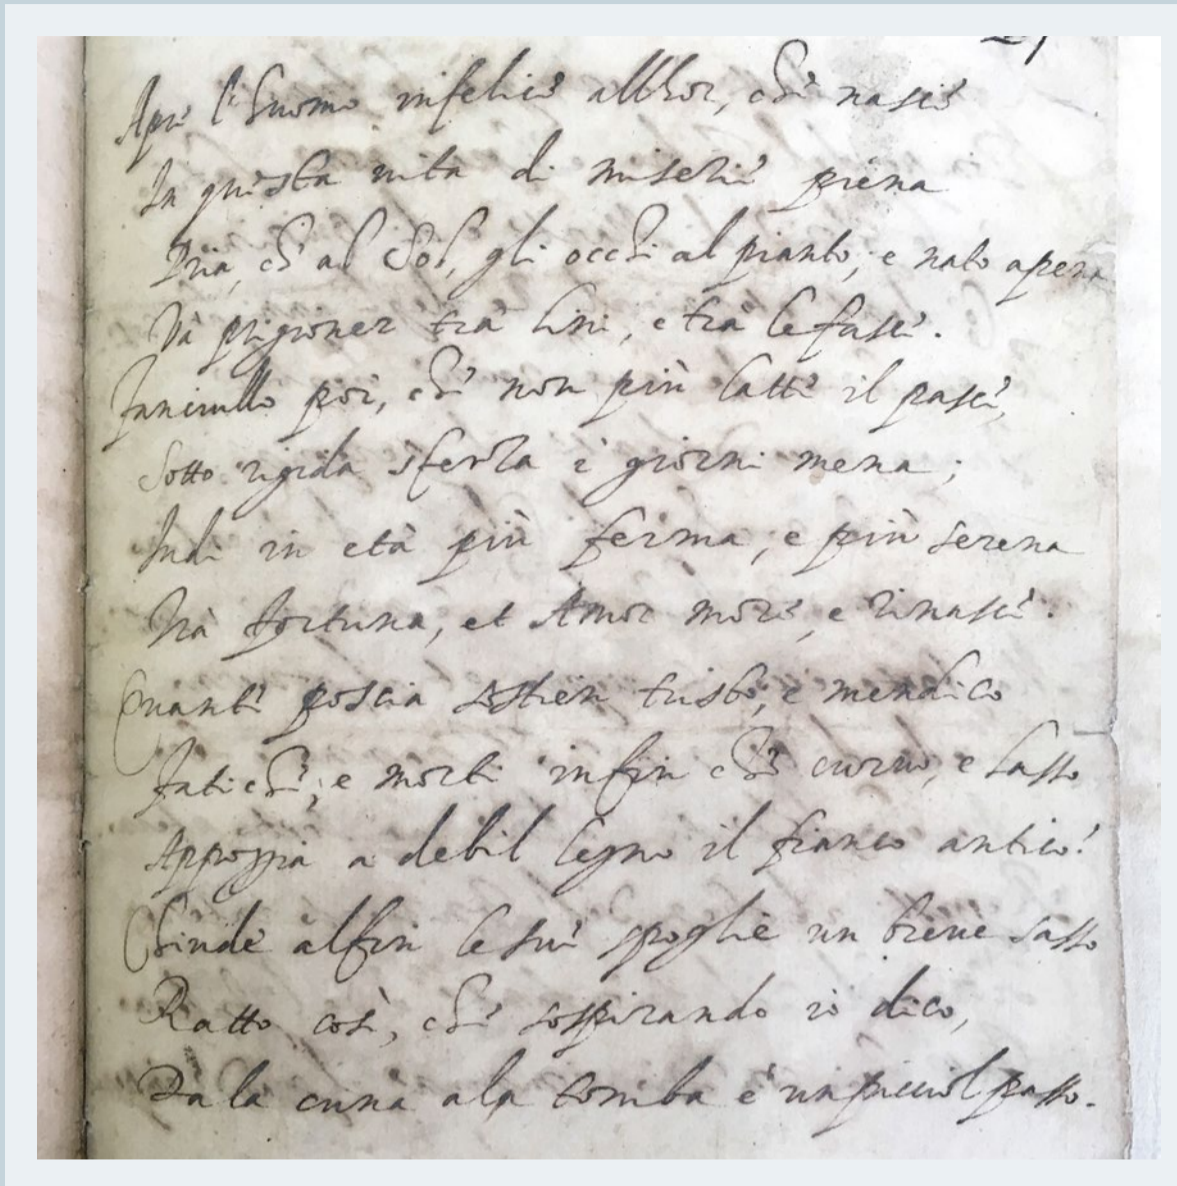 Apre l'huomo infelice allhor, che nasce
In questa uita di miserie piena
Pria, ch'al Sol, gli occhi al pianto; e nato apena
Và prigioner trà lini, e trà le fasce.
Fanciullo poi, che non più latte il pasce,
Sotto rigida sferza i giorni mena;
Indi in età più ferma, e più serena
Trà fortuna, et Amor more, e rinasce.
Quante poscia sostien tristo, e mendico
Fatiche, e morti infin che curuo, e lasso
Appoggia a debil legno il fianco antico!
Chiude alfin le sue spoglie un breue sasso
Ratto così, che sospirando io dico,
Da la cuna a la tomba è un picciol passo.